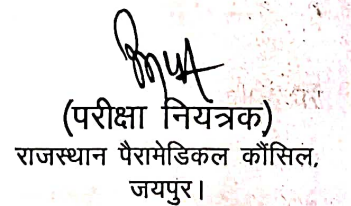 (परीक्षा नियत्रक)
राजस्थान पैरामेडिकल कौंसिल,
जयपुर।